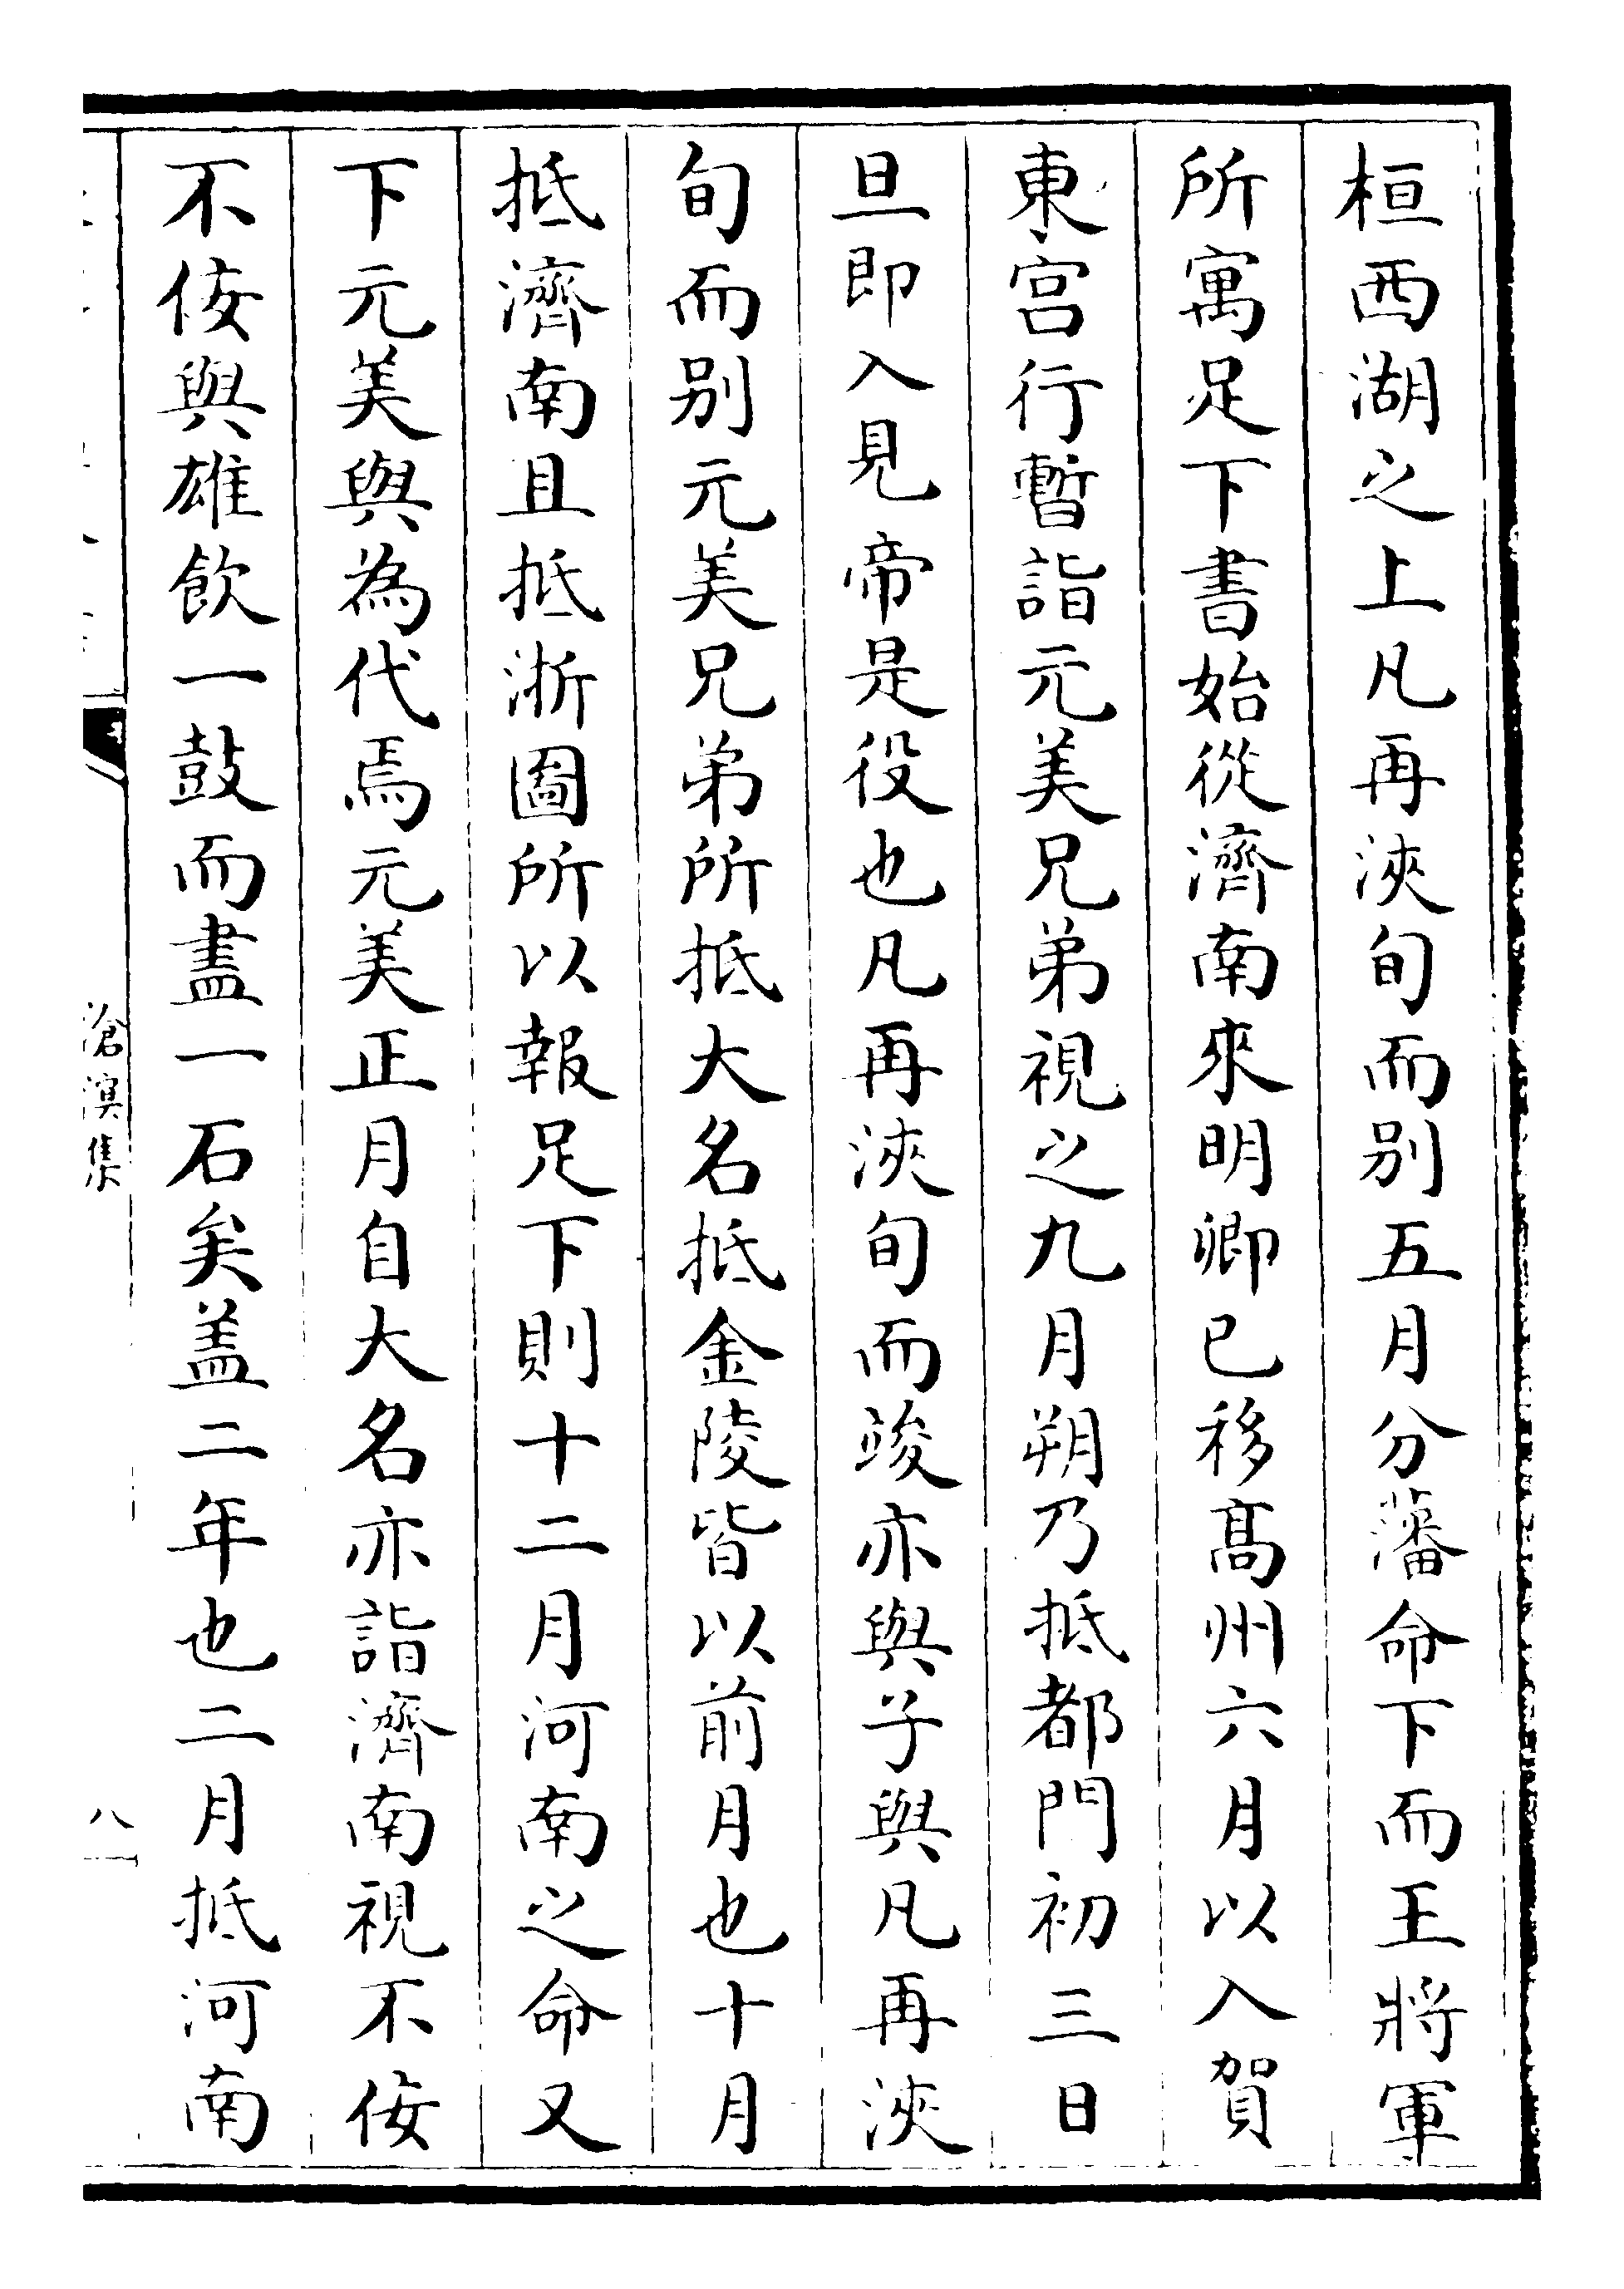 桓西湖之上凡再浹旬而别五月分藩命下而王將軍
所寓足下書始從濟南來明卿已移髙州六月以入賀
東宫行暫詣元美兄弟視之九月朔乃抵都門初三日
旦即入見帝是役也凡再浹旬而竣亦與子與凡再浹
旬而别元美兄弟所抵大名抵金陵皆以前月也十月
抵濟南且抵浙圖所以報足下則十二月河南之命又
下元美與為代焉元美正月自大名亦詣濟南視不佞
不佞與雄飲一鼓而盡一石矣盖二年也二月抵河南
滄溟集
八